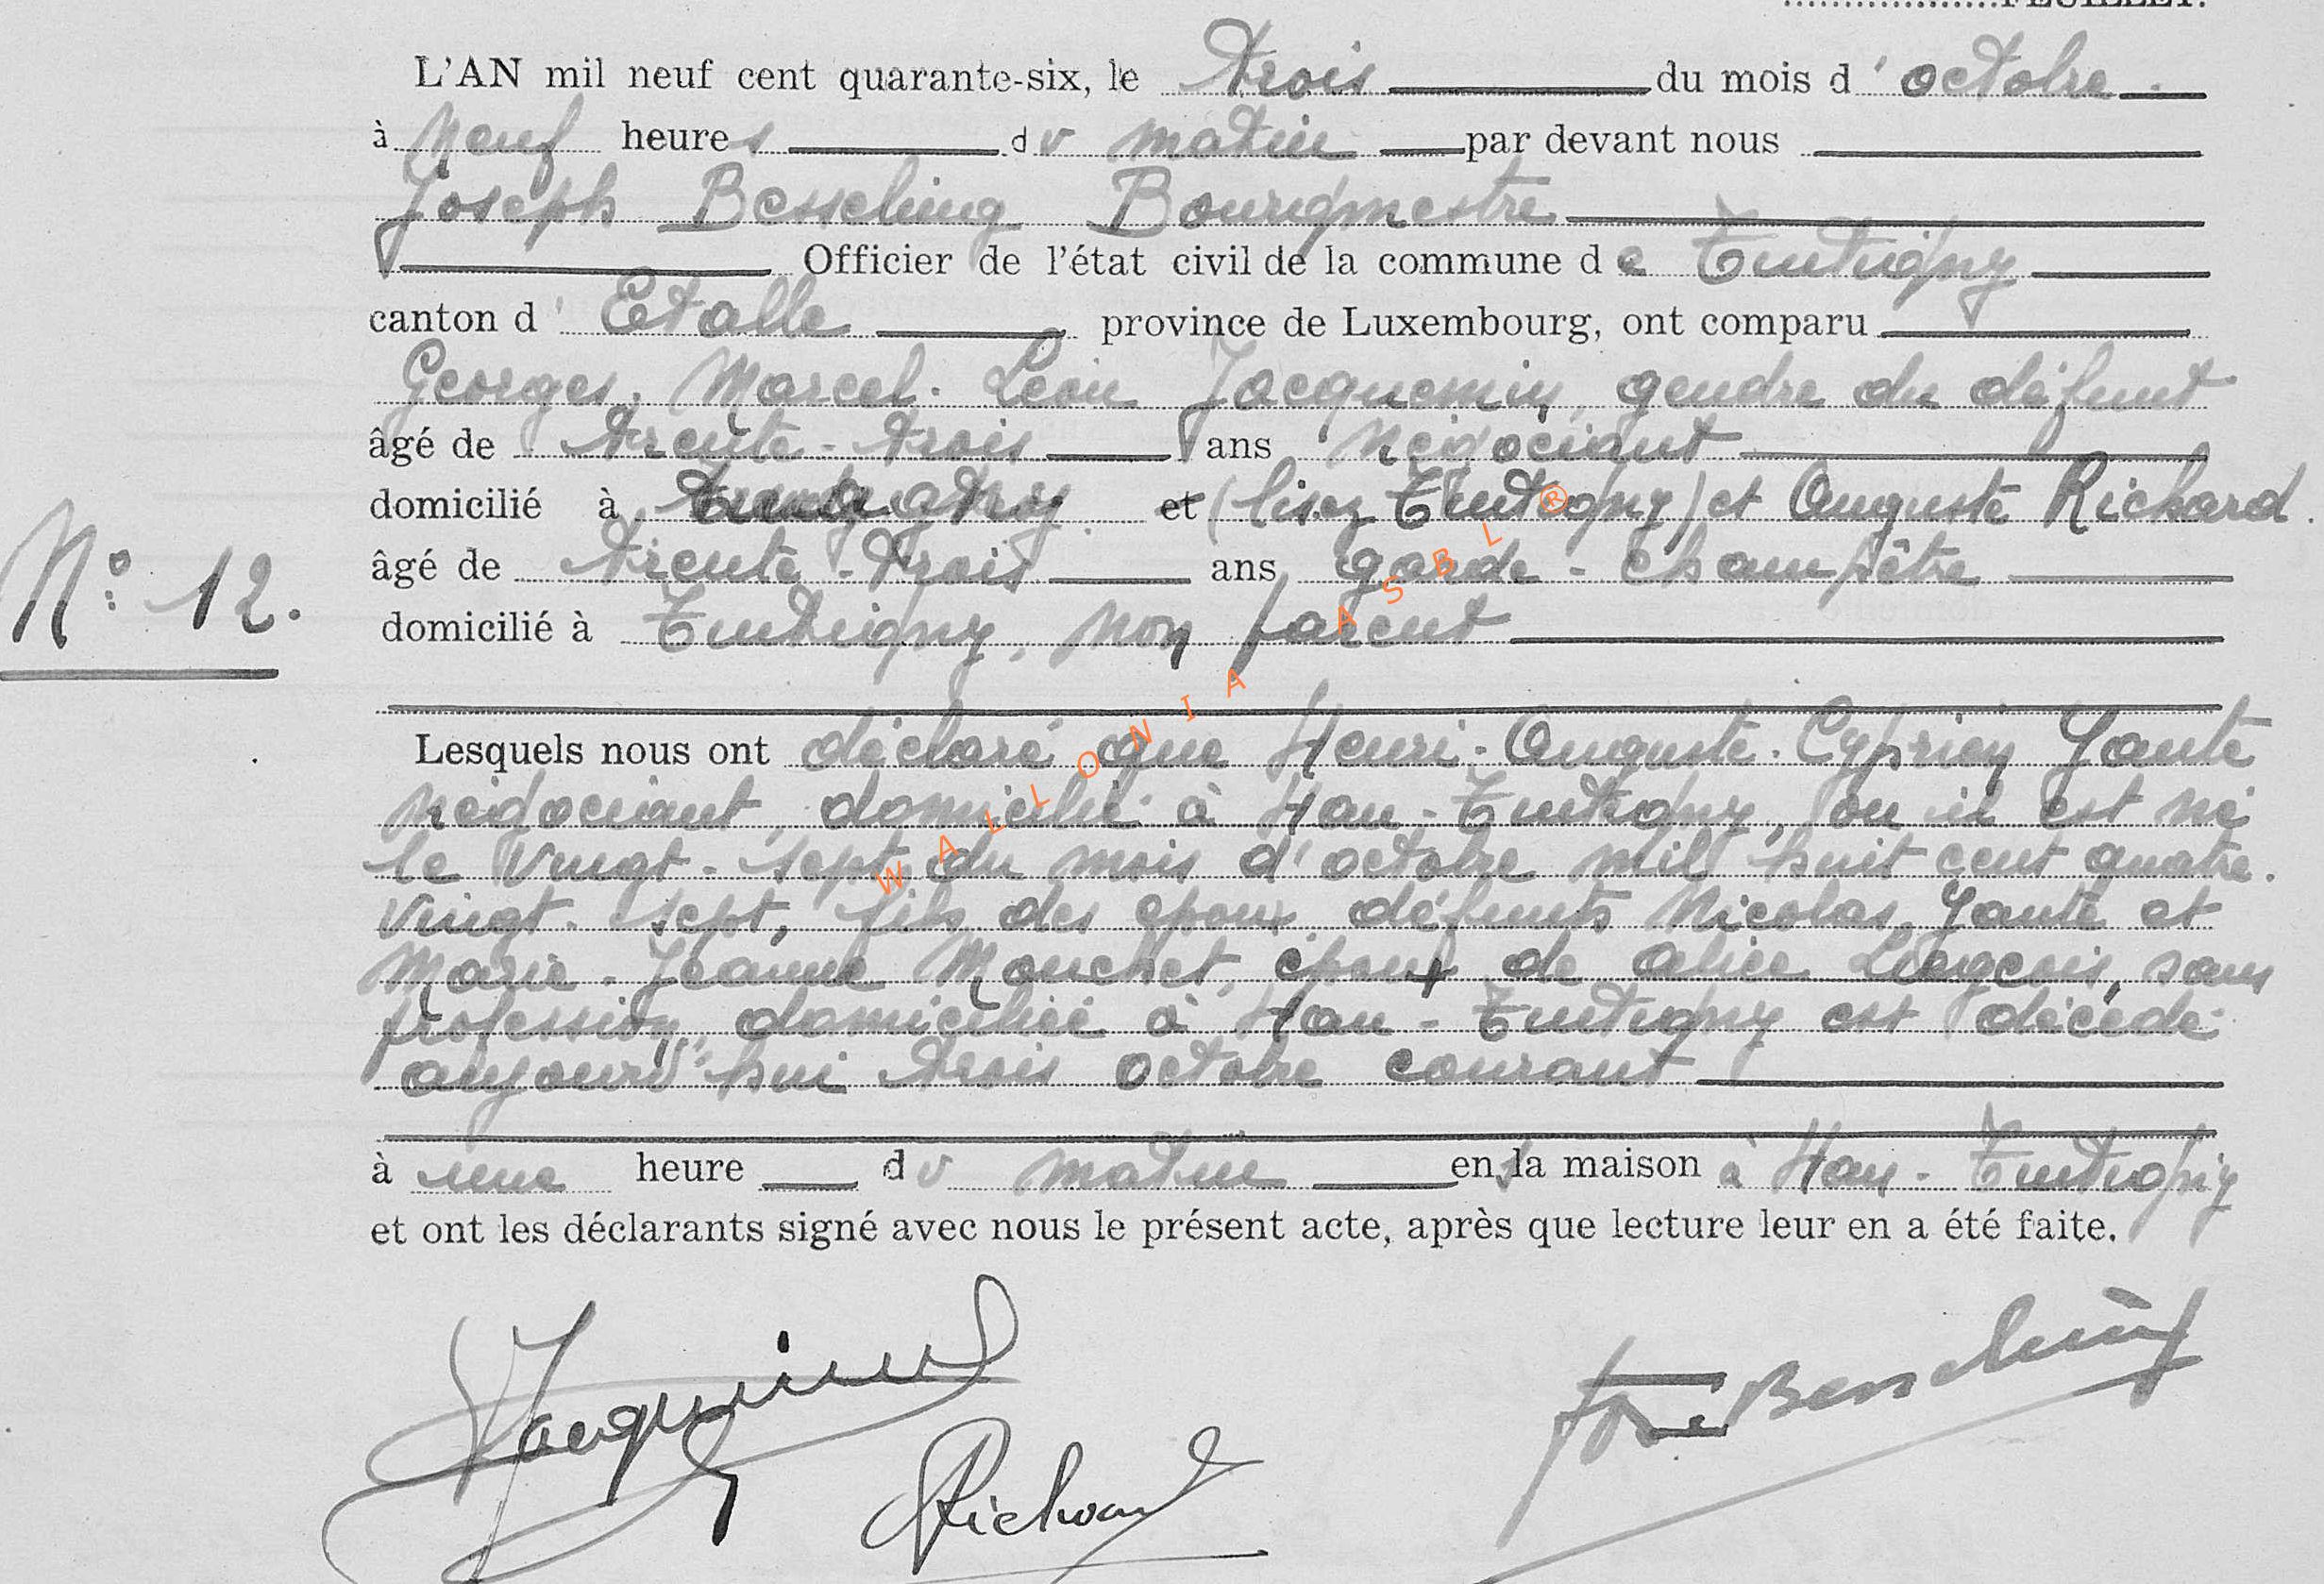 FEUILLET.
L'AN mil neuf cent quarante-six, le trois du mois d'octobre
à neuf heures du matin par devant nous
Joseph Besseling Bourgmestre
Officier de l'état civil de la commune de Tintigny
canton d'Etalle province de Luxembourg, ont comparu
Georges. Marcel. Léon Jacquemin, gendre du défunt
âgé de trente-trois ans négociant
domicilié à et (lisez Tintigny) et Auguste Richard.
âgé de trente-trois ans garde-champêtre
N° 12.
domicilié à Tintigny, non parent
Lesquels nous ont déclaré que Henri-Auguste-Cyprien Yante
négociant, domicilié à Han-Tintigny, ou il est né
le vingt-sept du mois d'octobre mil huit cent quatre.
vingt-sept, fils des époux défunts Nicolas Yante et
Marie-Jeanne Mouchet, époux de Alice Liégeois, sans
profession, domiciliée à Han-Tintigny est décédé
aujourd'hui trois octobre courant
à une heure du matin en sa maison à Han-Tintigny
et ont les déclarants signé avec nous le présent acte, après que lecture leur en a été faite.
Jacquemin
Richard
Jos Besseling
WALLONIA ASBL ®